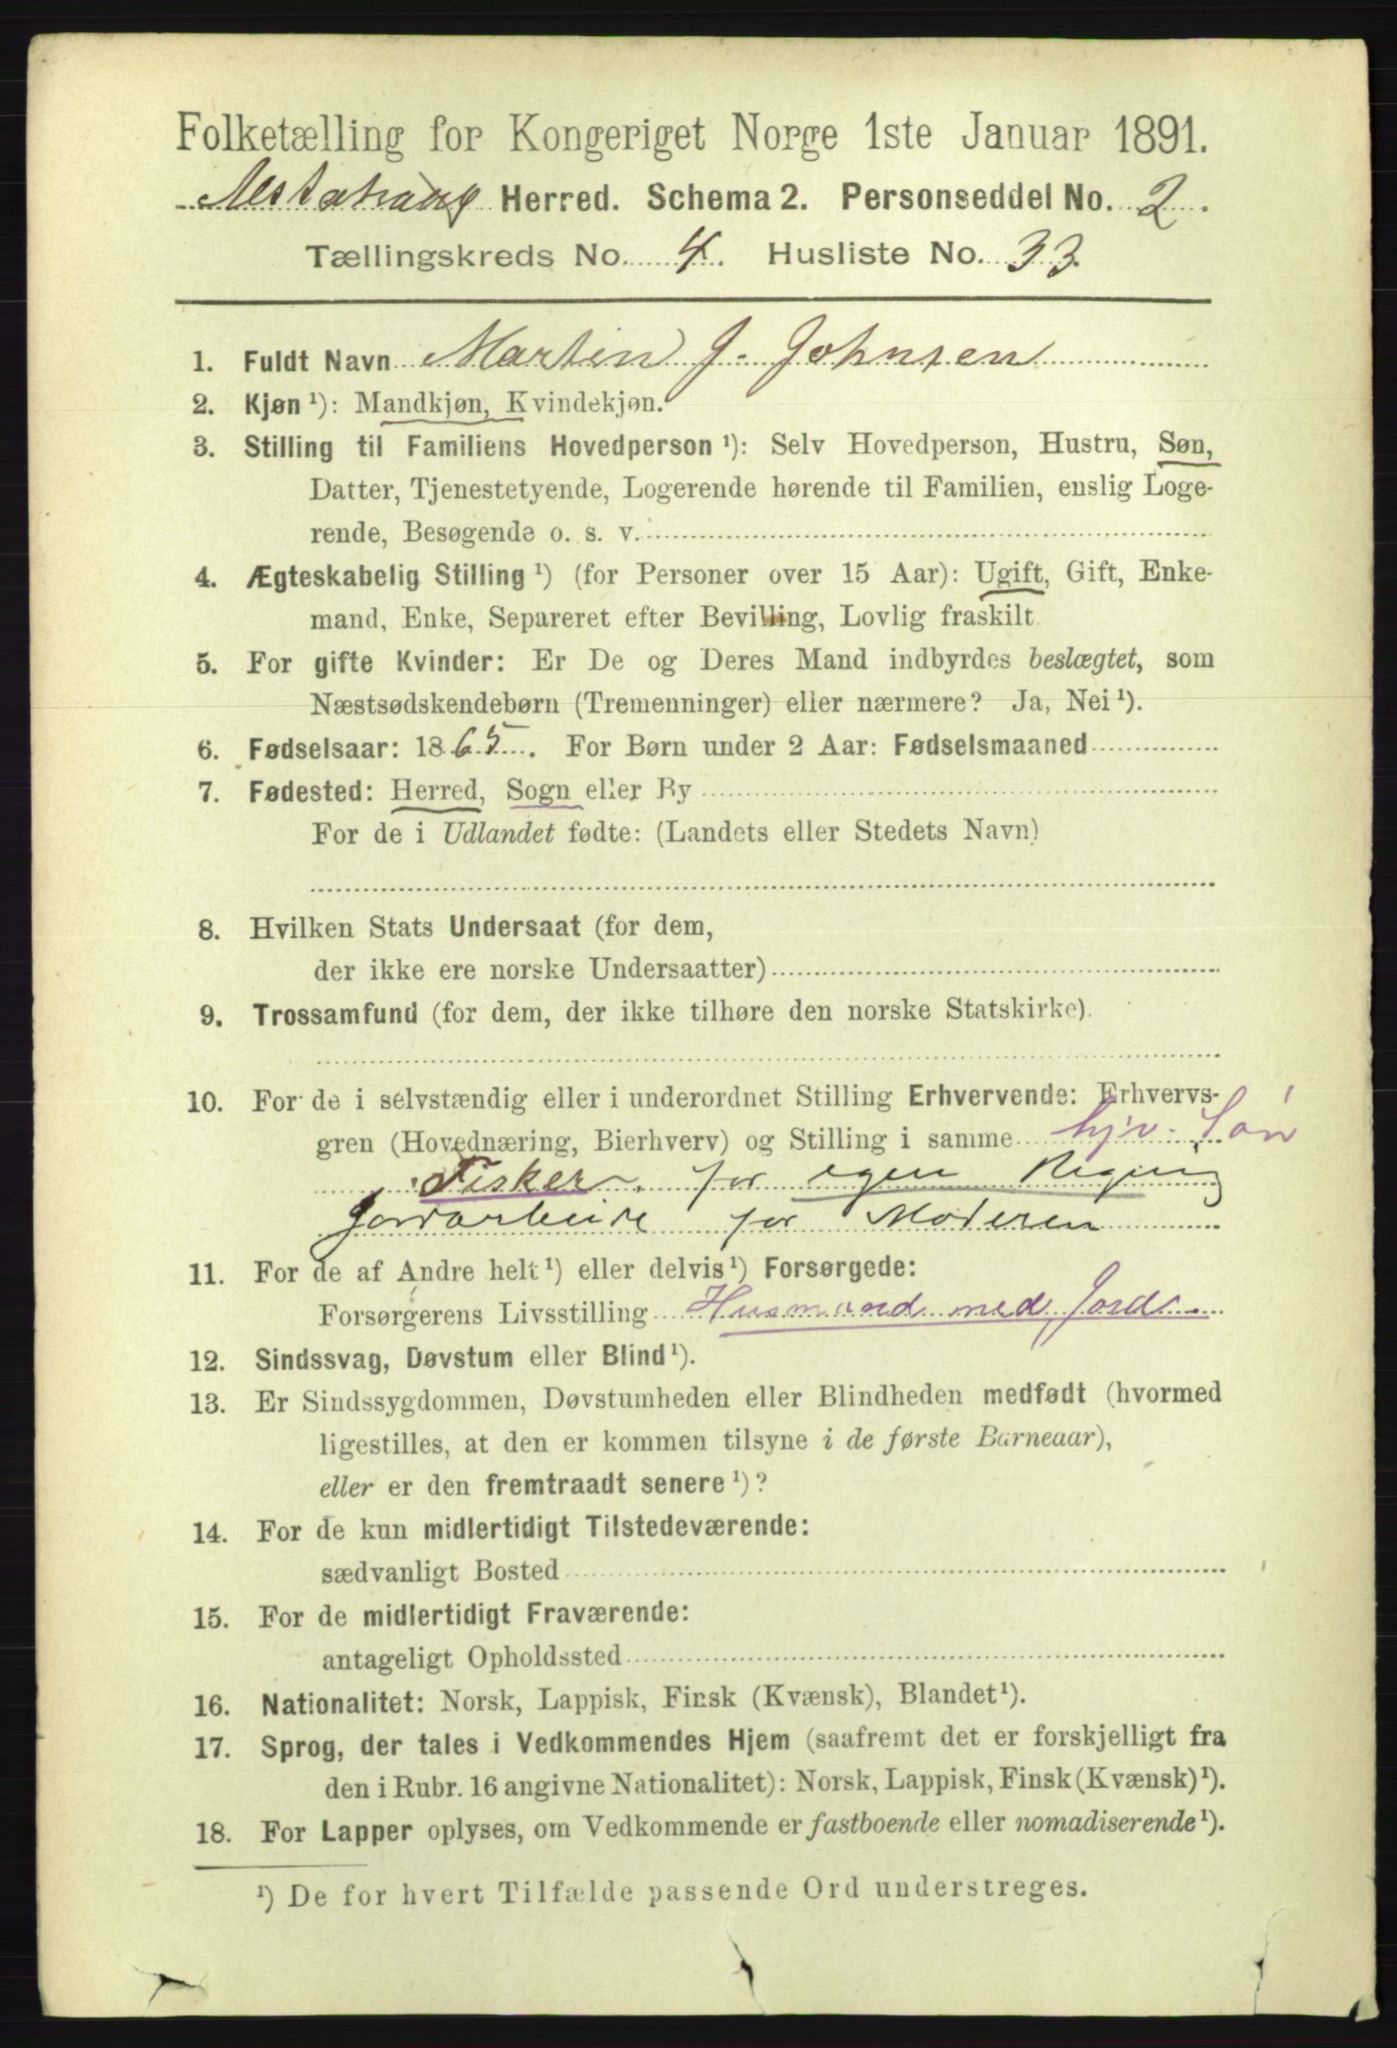 Folketælling for Kongeriget Norge 1ste Januar 1891.
Alstahaug Herred. Schema 2. Personseddel No. 2.
Tællingskreds No. 4. Husliste No. 33.
1. Fuldt Navn Martin J. Johnsen
2. Kjøn ¹): Mandkjøn, Kvindekjøn.
3. Stilling til Familiens Hovedperson ¹): Selv Hovedperson, Hustru, Søn,
Datter, Tjenestetyende, Logerende hørende til Familien, enslig Loge-
rende, Besøgende o. s. v.
4. Ægteskabelig Stilling ¹) (for Personer over 15 Aar): Ugift, Gift, Enke-
mand, Enke, Separeret efter Bevilling, Lovlig fraskilt.
5. For gifte Kvinder: Er De og Deres Mand indbyrdes beslægtet, som
Næstsødskendebørn (Tremenninger) eller nærmere? Ja, Nei ¹).
6. Fødselsaar: 1865. For Børn under 2 Aar: Fødselsmaaned
7. Fødested: Herred, Sogn eller By
For de i Udlandet fødte: (Landets eller Stedets Navn)
8. Hvilken Stats Undersaat (for dem,
der ikke ere norske Undersaatter)
9. Trossamfund (for dem, der ikke tilhøre den norske Statskirke).
10. For de i selvstændig eller i underordnet Stilling Erhvervende: Erhvervs-
gren (Hovednæring, Bierhverv) og Stilling i samme hjv. Søn
Fisker for egen Regning
Jordarbeide for Moderen
11. For de af Andre helt ¹) eller delvis ¹) Forsørgede:
Forsørgerens Livsstilling Husmand med Jord.
12. Sindssvag, Døvstum eller Blind ¹).
13. Er Sindssygdommen, Døvstumheden eller Blindheden medfødt (hvormed
ligestilles, at den er kommen tilsyne i de første Barneaar),
eller er den fremtraadt senere ¹)?
14. For de kun midlertidigt Tilstedeværende:
sædvanligt Bosted
15. For de midlertidigt Fraværende:
antageligt Opholdssted
16. Nationalitet: Norsk, Lappisk, Finsk (Kvænsk), Blandet ¹).
17. Sprog, der tales i Vedkommendes Hjem (saafremt det er forskjelligt fra
den i Rubr. 16 angivne Nationalitet): Norsk, Lappisk, Finsk (Kvænsk) ¹).
18. For Lapper oplyses, om Vedkommende er fastboende eller nomadiserende ¹).
¹) De for hvert Tilfælde passende Ord understreges.